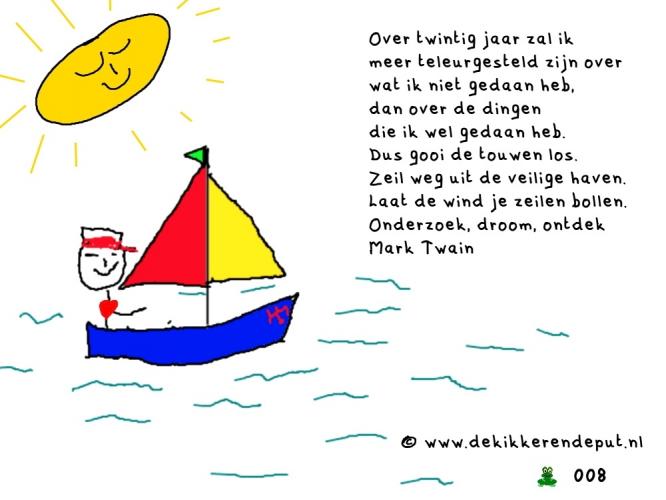 Over twintig jaar zal ik
meer teleurgesteld zijn over
wat ik niet gedaan heb,
dan over de dingen
die ik wel gedaan heb.
Dus gooi de touwen los.
Zeil weg uit de veilige haven.
Laat de wind je zeilen bollen.
Onderzoek, droom, ontdek
Mark Twain
© www.dekikkerendeput.nl
008